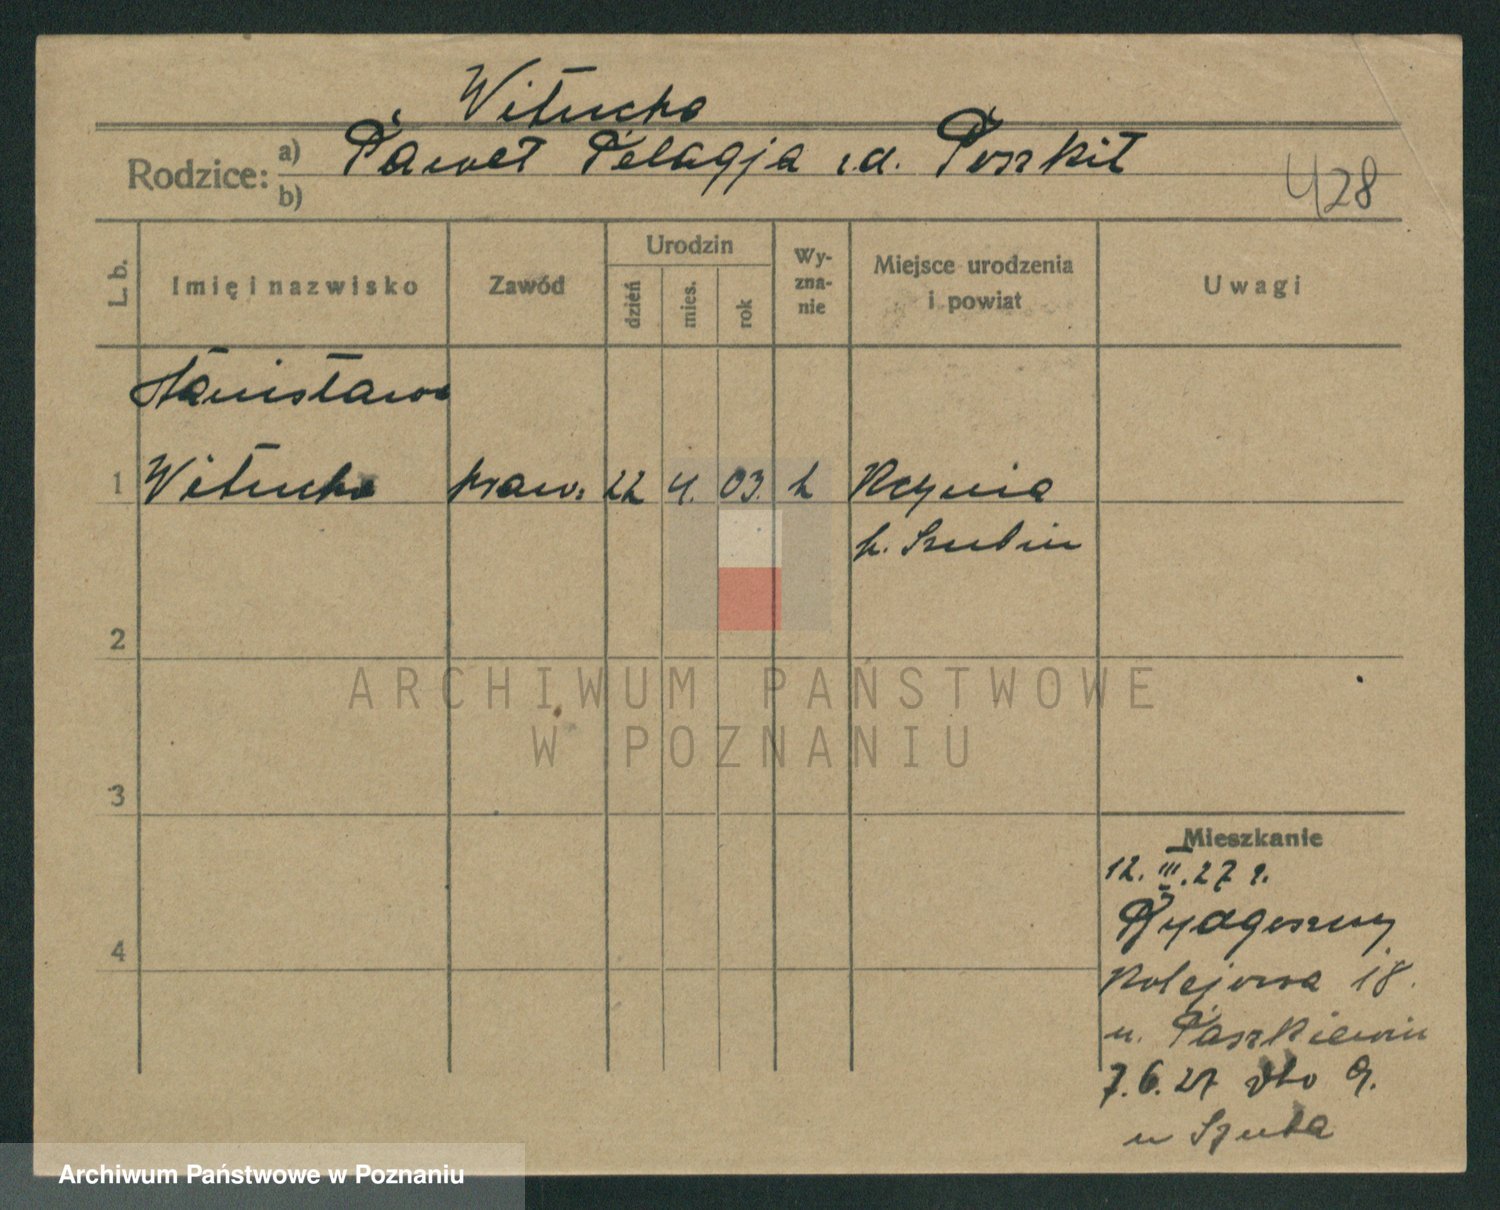 Witucka
Rodzice: a) Paweł Pelagja z.d. Poszkił
b)
428
L. b.
Imię i nazwisko
Zawód
Urodzin
dzień
mies.
rok
Wy-
zna-
nie
Miejsce urodzenia
i powiat
Uwagi
Stanisława
1 Witucka praw. 22 4. 03. k Kcynia
p. Szubin
2
ARCHIWUM PAŃSTWOWE
W POZNANIU
3
Mieszkanie
12. III. 27 r.
Bydgoszczy
4
Kolejowa 18.
u. Paszkiewicz
7.6.27 9.
u Szuba
Archiwum Państwowe w Poznaniu